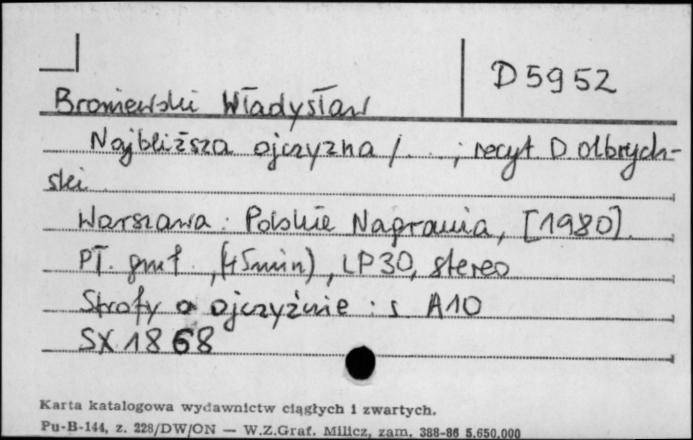 D 5952
Broniewski Władysław
Najbliższa ojczyzna / ... ; recyt. D. Olbrych-
ski
Warszawa : Polskie Nagrania, [1980].
Pł. gmf., (45min), LP30, stereo
Strofy o ojczyźnie : s. A10
SX 1868
Karta katalogowa wydawnictw ciągłych i zwartych.
Pu-B-144, z. 228/DW/ON — W.Z.Graf. Milicz, zam. 388-86 5.650.000